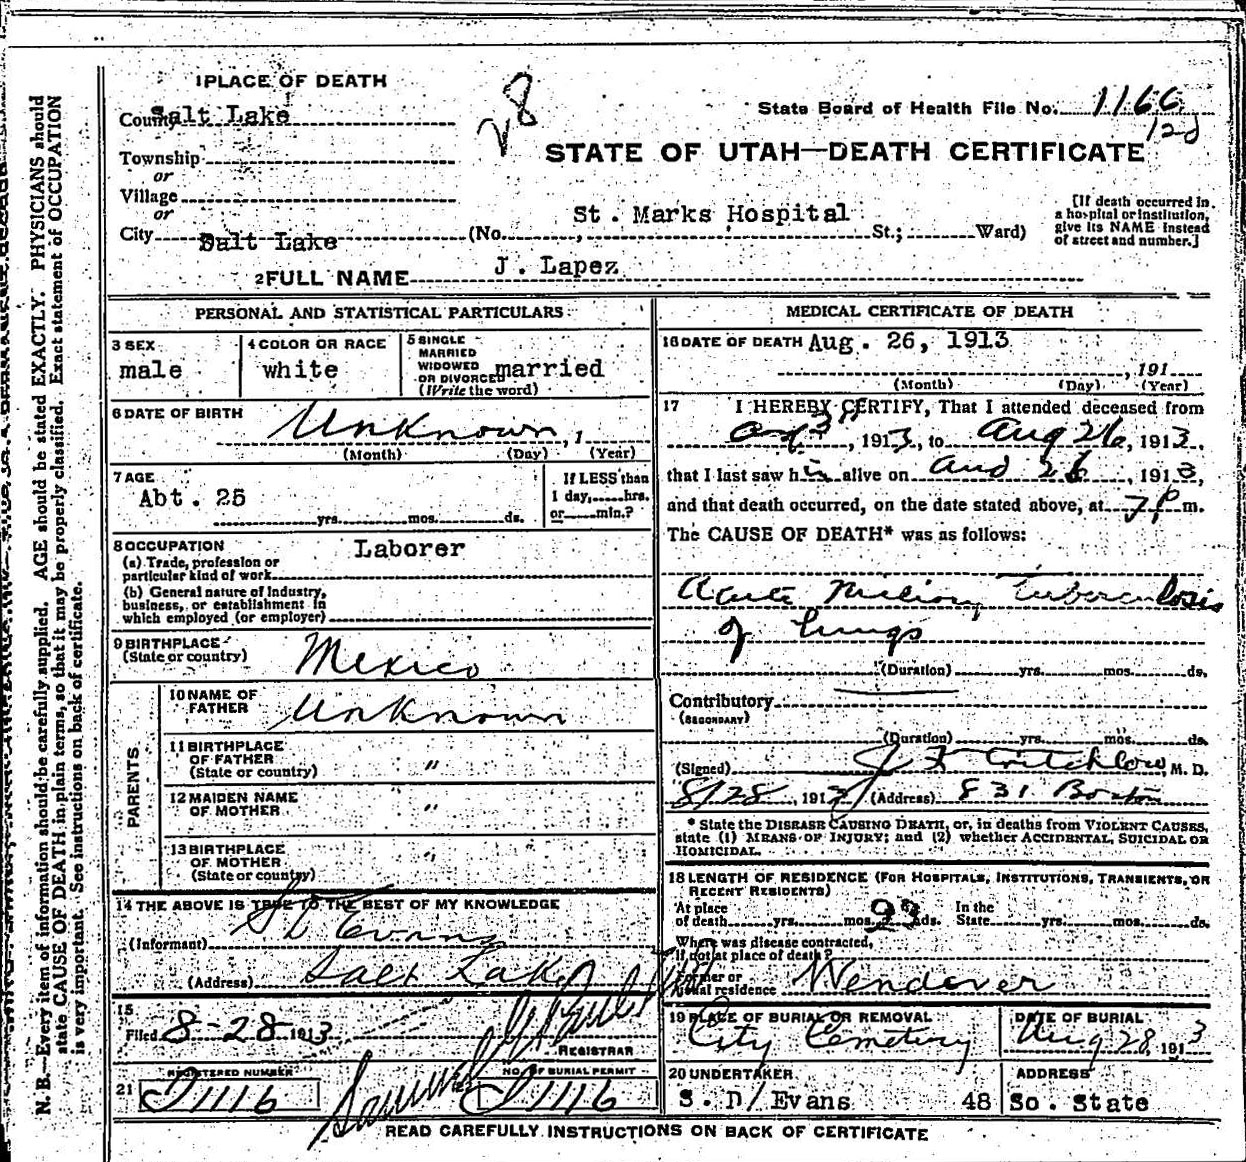 1 PLACE OF DEATH
County Salt Lake
Township
or
Village
or
City Salt Lake (No. St. Marks Hospital St.; Ward)
28
State Board of Health File No. 1166
12d
STATE OF UTAH—DEATH CERTIFICATE
[If death occurred in a hospital or institution, give its NAME instead of street and number.]
2 FULL NAME J. Lapez
PERSONAL AND STATISTICAL PARTICULARS
3 SEX
male
4 COLOR OR RACE
white
5 SINGLE
MARRIED
WIDOWED
OR DIVORCED married
(Write the word)
6 DATE OF BIRTH
Unknown, 1
(Month) (Day) (Year)
7 AGE
Abt. 25
yrs. mos. ds.
If LESS than
1 day, hrs.
or min.?
8 OCCUPATION Laborer
(a) Trade, profession or
particular kind of work
(b) General nature of Industry,
business, or establishment in
which employed (or employer)
9 BIRTHPLACE
(State or country) Mexico
PARENTS
10 NAME OF
FATHER Unknown
11 BIRTHPLACE
OF FATHER
(State or country) "
12 MAIDEN NAME
OF MOTHER "
13 BIRTHPLACE
OF MOTHER
(State or country) "
14 THE ABOVE IS TRUE TO THE BEST OF MY KNOWLEDGE
(Informant) S D Evans
(Address) Salt Lake
15
Filed 8-28 1913
REGISTRAR
21
REGISTERED NUMBER
D1116
NO. OF BURIAL PERMIT
D1116
MEDICAL CERTIFICATE OF DEATH
16 DATE OF DEATH Aug. 26, 1913
, 191
(Month) (Day) (Year)
17 I HEREBY CERTIFY, That I attended deceased from
3", 1913, to Aug 26, 1913,
that I last saw him alive on Aug 26, 1913,
and that death occurred, on the date stated above, at 7 P m.
The CAUSE OF DEATH* was as follows:
Acute Miliary Tuberculosis
of lungs
(Duration) yrs. mos. ds.
Contributory
(SECONDARY)
(Duration) yrs. mos. ds.
(Signed) J F Critchlow, M. D.
8/28, 1913 (Address) 831 Boston
* State the DISEASE CAUSING DEATH, or, in deaths from VIOLENT CAUSES,
state (1) MEANS OF INJURY; and (2) whether ACCIDENTAL, SUICIDAL OR
HOMICIDAL.
18 LENGTH OF RESIDENCE (FOR HOSPITALS, INSTITUTIONS, TRANSIENTS, OR
RECENT RESIDENTS)
At place
of death yrs. mos. 23 ds. In the
State yrs. mos. ds.
Where was disease contracted,
If not at place of death?
Former or
usual residence Wendover
19 PLACE OF BURIAL OR REMOVAL
City Cemetery
DATE OF BURIAL
Aug 28, 1913
20 UNDERTAKER
S. D/ Evans
ADDRESS
48 So. State
READ CAREFULLY INSTRUCTIONS ON BACK OF CERTIFICATE
N. B.—Every item of information should be carefully supplied. AGE should be stated EXACTLY. PHYSICIANS should
state CAUSE OF DEATH in plain terms, so that it may be properly classified. Exact statement of OCCUPATION
is very important. See instructions on back of certificate.